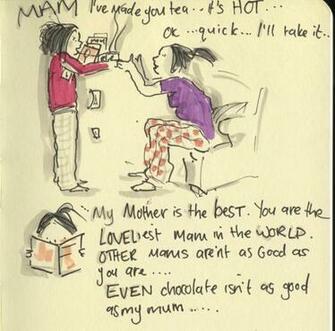 MAM I've made you tea.. it's HOT...
OK ...quick... I'll take it..
My Mother is the best. You are the
LOVELiest Mam in the WORLD.
OTHER Mams arent as Good as
you are ....
EVEN chocolate isn't as good
as my mum .....